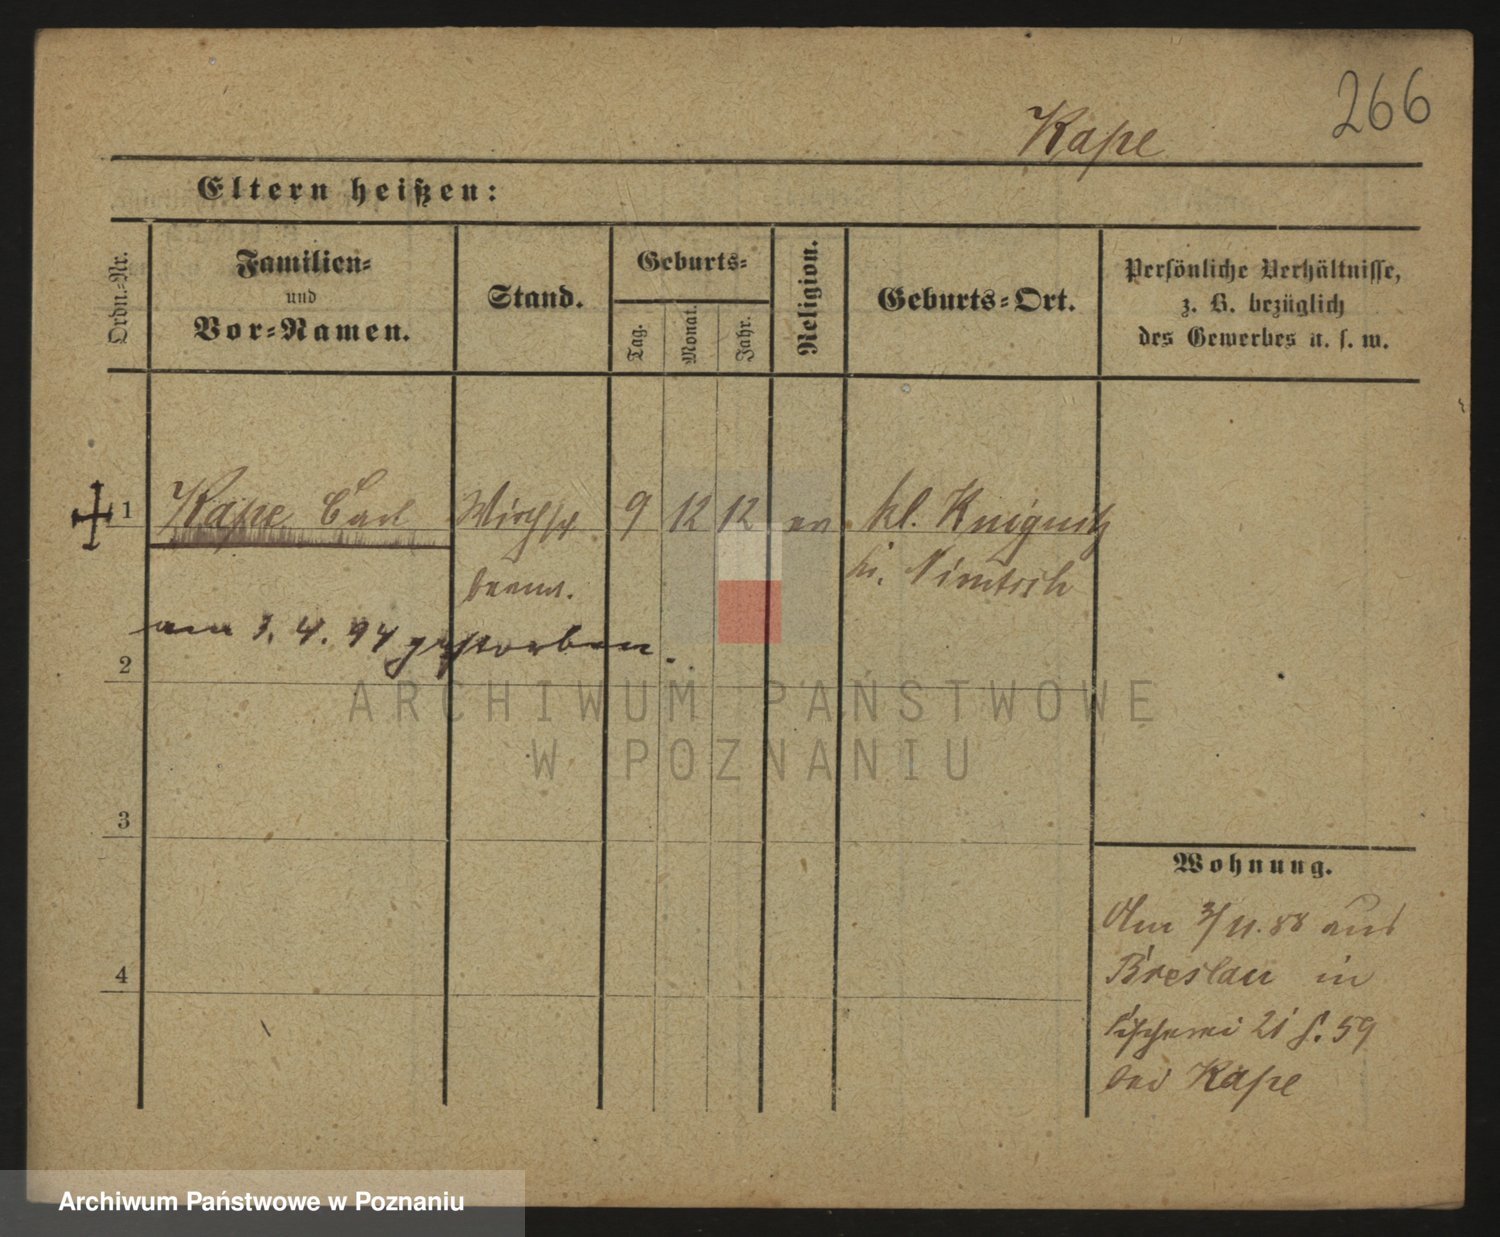 266
Kape
Eltern heißen:
Ordn.-Nr.
Familien-
und
Vor-Namen.
Stand.
Geburts-
Tag.
Monat.
Jahr.
Religion.
Geburts-Ort.
Persönliche Verhältnisse,
z. B. bezüglich
des Gewerbes u. s. w.
1 Kape Carl Wirthsch 9 12 12 ev. kl. Kniegnitz
beamt. bei. Nimtsch
am 3. 4. 94 gestorben.
2
ARCHIWUM PAŃSTWOWE
W POZNANIU
3
Wohnung.
Am 3/11.88 aus
Breslau in
4
Fischerei 21 f. 59
bei Kape
Archiwum Państwowe w Poznaniu